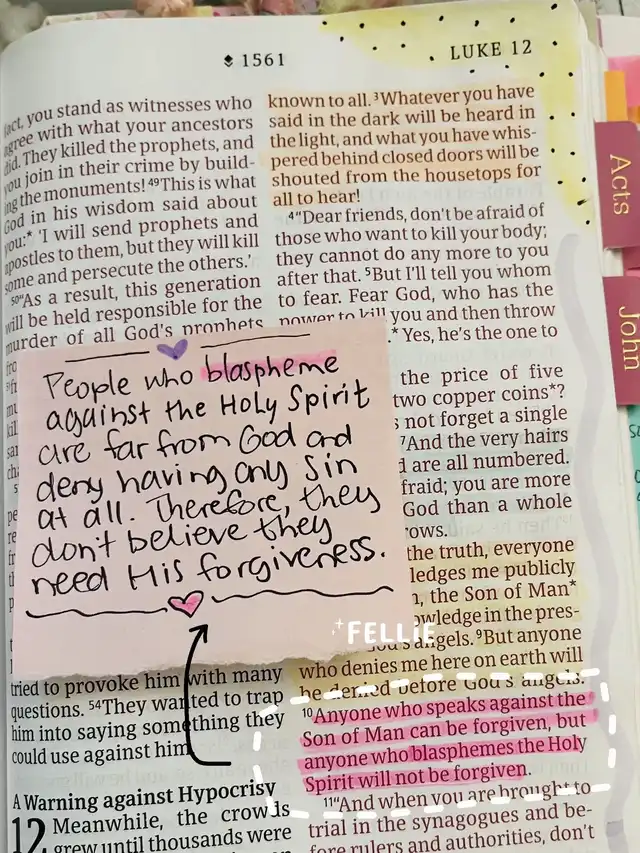 1561
LUKE 12
fact, you stand as witnesses who
agree with what your ancestors
did. They killed the prophets, and
you join in their crime by build-
ing the monuments! 49This is what
God in his wisdom said about
you:* ‘I will send prophets and
apostles to them, but they will kill
some and persecute the others.’
50“As a result, this generation
will be held responsible for the
murder of all God's prophets
People who blaspheme
against the Holy Spirit
are far from God and
deny having any sin
at all. Therefore, they
don't believe they
need His forgiveness.
tried to provoke him with many
questions. 54They wanted to trap
him into saying something they
could use against him
A Warning against Hypocrisy
12 Meanwhile, the crowds
grew until thousands were
known to all. 3Whatever you have
said in the dark will be heard in
the light, and what you have whis-
pered behind closed doors will be
shouted from the housetops for
all to hear!
4“Dear friends, don't be afraid of
those who want to kill your body;
they cannot do any more to you
after that. 5But I'll tell you whom
to fear. Fear God, who has the
power to kill you and then throw
.* Yes, he's the one to
the price of five
two copper coins*?
not forget a single
7And the very hairs
are all numbered.
afraid; you are more
God than a whole
rows.
the truth, everyone
ledges me publicly
the Son of Man*
owledge in the pres-
God's angels. 9But anyone
who denies me here on earth will
be denied before God's angels.
10Anyone who speaks against the
Son of Man can be forgiven, but
anyone who blasphemes the Holy
Spirit will not be forgiven.
11“And when you are brought to
trial in the synagogues and be-
fore rulers and authorities, don't
FELLiE
Acts
John